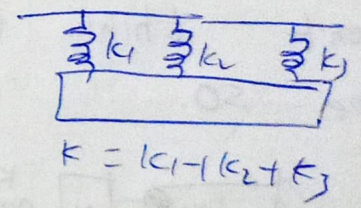 k₁ k₂ k₃
K = k₁ + k₂ + k₃